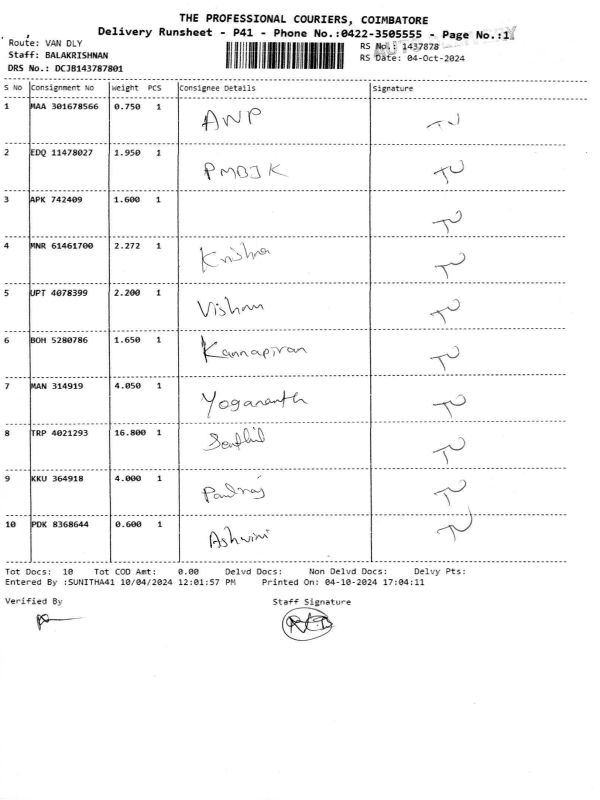 THE PROFESSIONAL COURIERS, COIMBATORE
Delivery Runsheet - P41 - Phone No.:0422-3505555 - Page No.:1
Route: VAN DLY
Staff: BALAKRISHNAN
DRS No.: DCJB143787801
RS No.: 1437878
RS Date: 04-Oct-2024
S No Consignment No Weight PCS Consignee Details Signature
1 MAA 301678566 0.750 1 AWP
2 EDQ 11478027 1.950 1 PMBJK
3 APK 742409 1.600 1
4 MNR 61461700 2.272 1 Krishna
5 UPT 4078399 2.200 1 Vishnu
6 BOM 5280786 1.650 1 Kannapiran
7 MAN 314919 4.050 1 Yogananth
8 TRP 4021293 16.800 1 Senthil
9 KKU 364918 4.000 1 Paulraj
10 PDK 8368644 0.600 1 Ashwini
Tot Docs: 10 Tot COD Amt: 0.00 Delvd Docs: Non Delvd Docs: Delvy Pts:
Entered By :SUNITHA41 10/04/2024 12:01:57 PM Printed On: 04-10-2024 17:04:11
Verified By Staff Signature